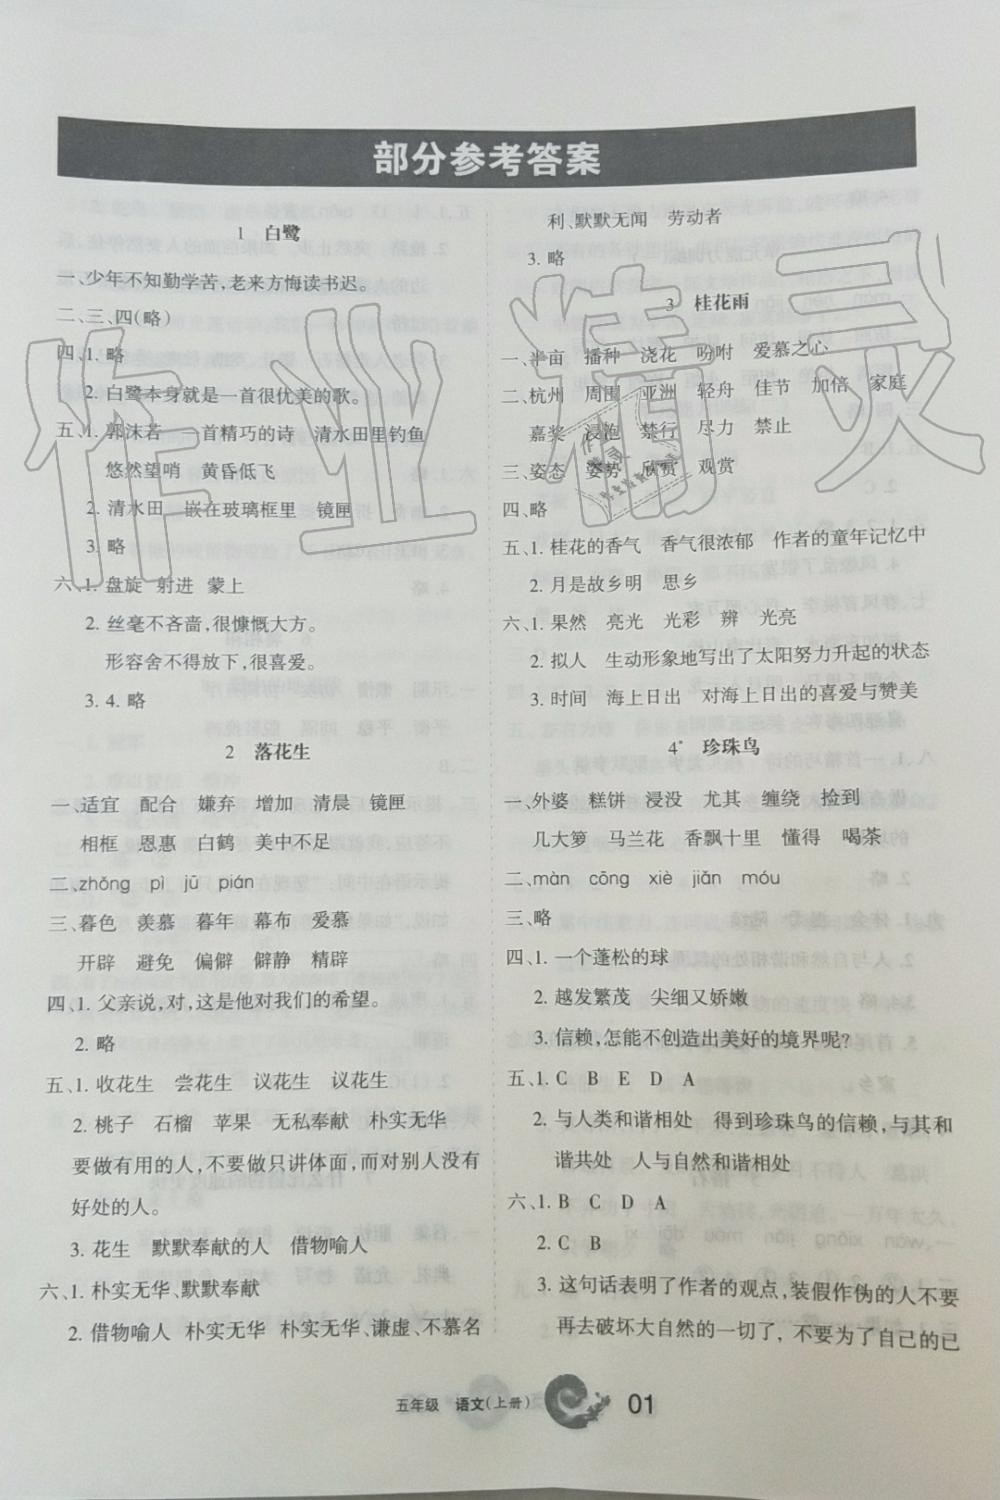 部分参考答案
1 白鹭
一、少年不知勤学苦,老来方悔读书迟。
二、三、四(略)
四、1. 略
2. 白鹭本身就是一首很优美的歌。
五、1. 郭沫若 一首精巧的诗 清水田里钓鱼
悠然望哨 黄昏低飞
2. 清水田 嵌在玻璃框里 镜匣
3. 略
六、1. 盘旋 射进 蒙上
2. 丝毫不吝啬,很慷慨大方。
形容舍不得放下,很喜爱。
3. 4. 略
2 落花生
一、适宜 配合 嫌弃 增加 清晨 镜匣
相框 恩惠 白鹤 美中不足
二、zhǒng pì jū pián
三、暮色 羡慕 暮年 幕布 爱慕
开辟 避免 偏僻 僻静 精辟
四、1. 父亲说,对,这是他对我们的希望。
2. 略
五、1. 收花生 尝花生 议花生 议花生
2. 桃子 石榴 苹果 无私奉献 朴实无华
要做有用的人,不要做只讲体面,而对别人没有
好处的人。
3. 花生 默默奉献的人 借物喻人
六、1. 朴实无华、默默奉献
2. 借物喻人 朴实无华 朴实无华、谦虚、不慕名
利、默默无闻 劳动者
3. 略
3 桂花雨
一、半亩 播种 浇花 吩咐 爱慕之心
二、杭州 周围 亚洲 轻舟 佳节 加倍 家庭
嘉奖 浸泡 禁行 尽力 禁止
三、姿态 姿势 欣赏 观赏
四、略
五、1. 桂花的香气 香气很浓郁 作者的童年记忆中
2. 月是故乡明 思乡
六、1. 果然 亮光 光彩 辨 光亮
2. 拟人 生动形象地写出了太阳努力升起的状态
3. 时间 海上日出 对海上日出的喜爱与赞美
4* 珍珠鸟
一、外婆 糕饼 浸没 尤其 缠绕 捡到
几大箩 马兰花 香飘十里 懂得 喝茶
二、màn cōng xiè jiǎn móu
三、略
四、1. 一个蓬松的球
2. 越发繁茂 尖细又娇嫩
3. 信赖,怎能不创造出美好的境界呢?
五、1. C B E D A
2. 与人类和谐相处 得到珍珠鸟的信赖,与其和
谐共处 人与自然和谐相处
六、1. B C D A
2. C B
3. 这句话表明了作者的观点,装假作伪的人不要
再去破坏大自然的一切了,不要为了自己的已
五年级 语文(上册) 01
作业精灵